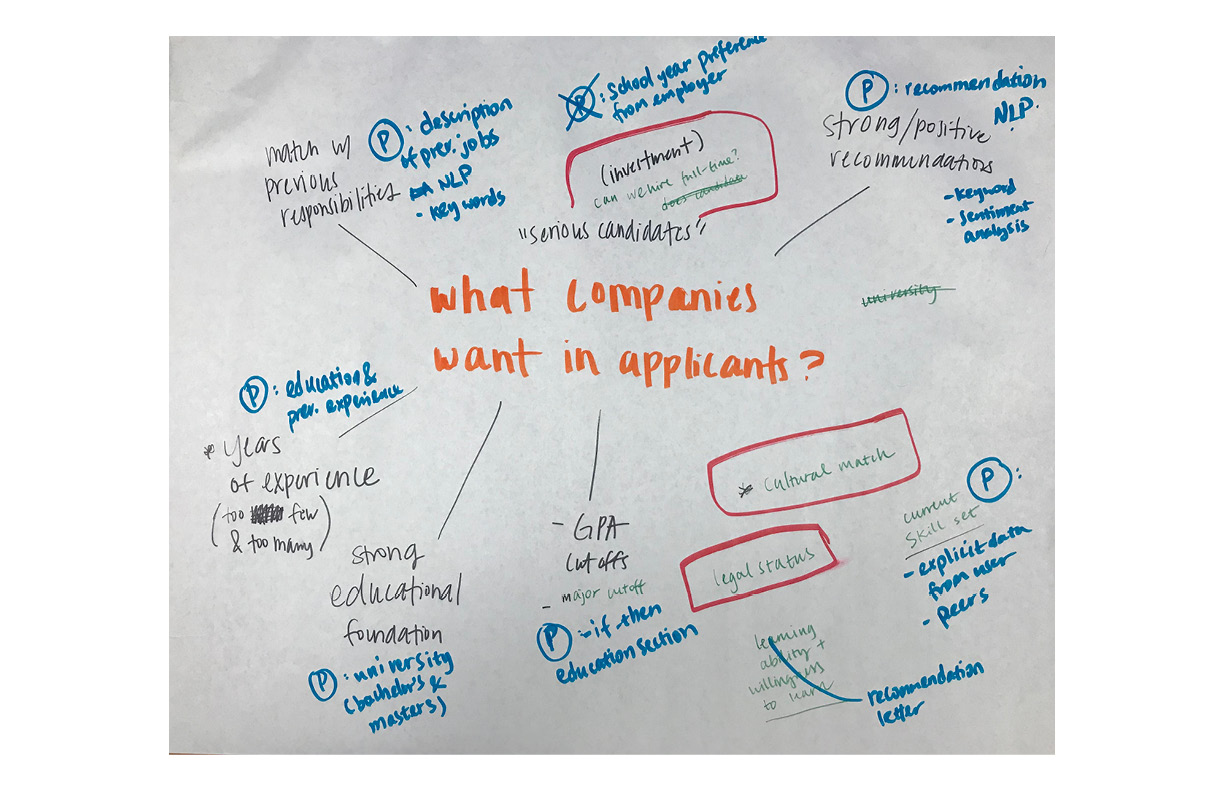 match w/
previous
responsibilities
P : description
of prev. jobs
NLP
- keywords
P : school year preference
from employer
(investment)
can we hire full-time?
does candidate
"serious candidates"
P : recommendation
NLP.
strong/positive
recommendations
- keyword
- sentiment
analysis
university
what companies
want in applicants?
P : education &
prev. experience
* years
of experience
(too few
& too many)
strong
educational
foundation
P : university
(bachelor's &
masters)
- GPA
cutoffs
- major cutoff
P :- if then
education section
* cultural match
legal status
current
skill set
P :
- explicit data
from user
- peers
learning
ability +
willingness
to learn
recommendation
letter